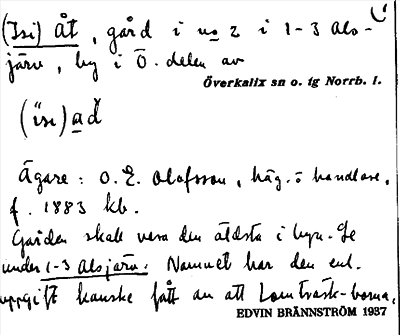 (Isi) åt, gård i no 2 i 1-3 Als-
järv, by i Ö. delen av
Överkalix sn o. tg Norrb. l.
(ìsι) ad
Ägare: O. E. Olofsson, häg. o handlare,
f. 1883 kb.
Gården skall vara den äldsta i byn. Se
under 1-3 Alsjärv. Namnet har den enl.
uppgift kanske fått av att Lomträsk-borna,
EDVIN BRÄNNSTRÖM 1937